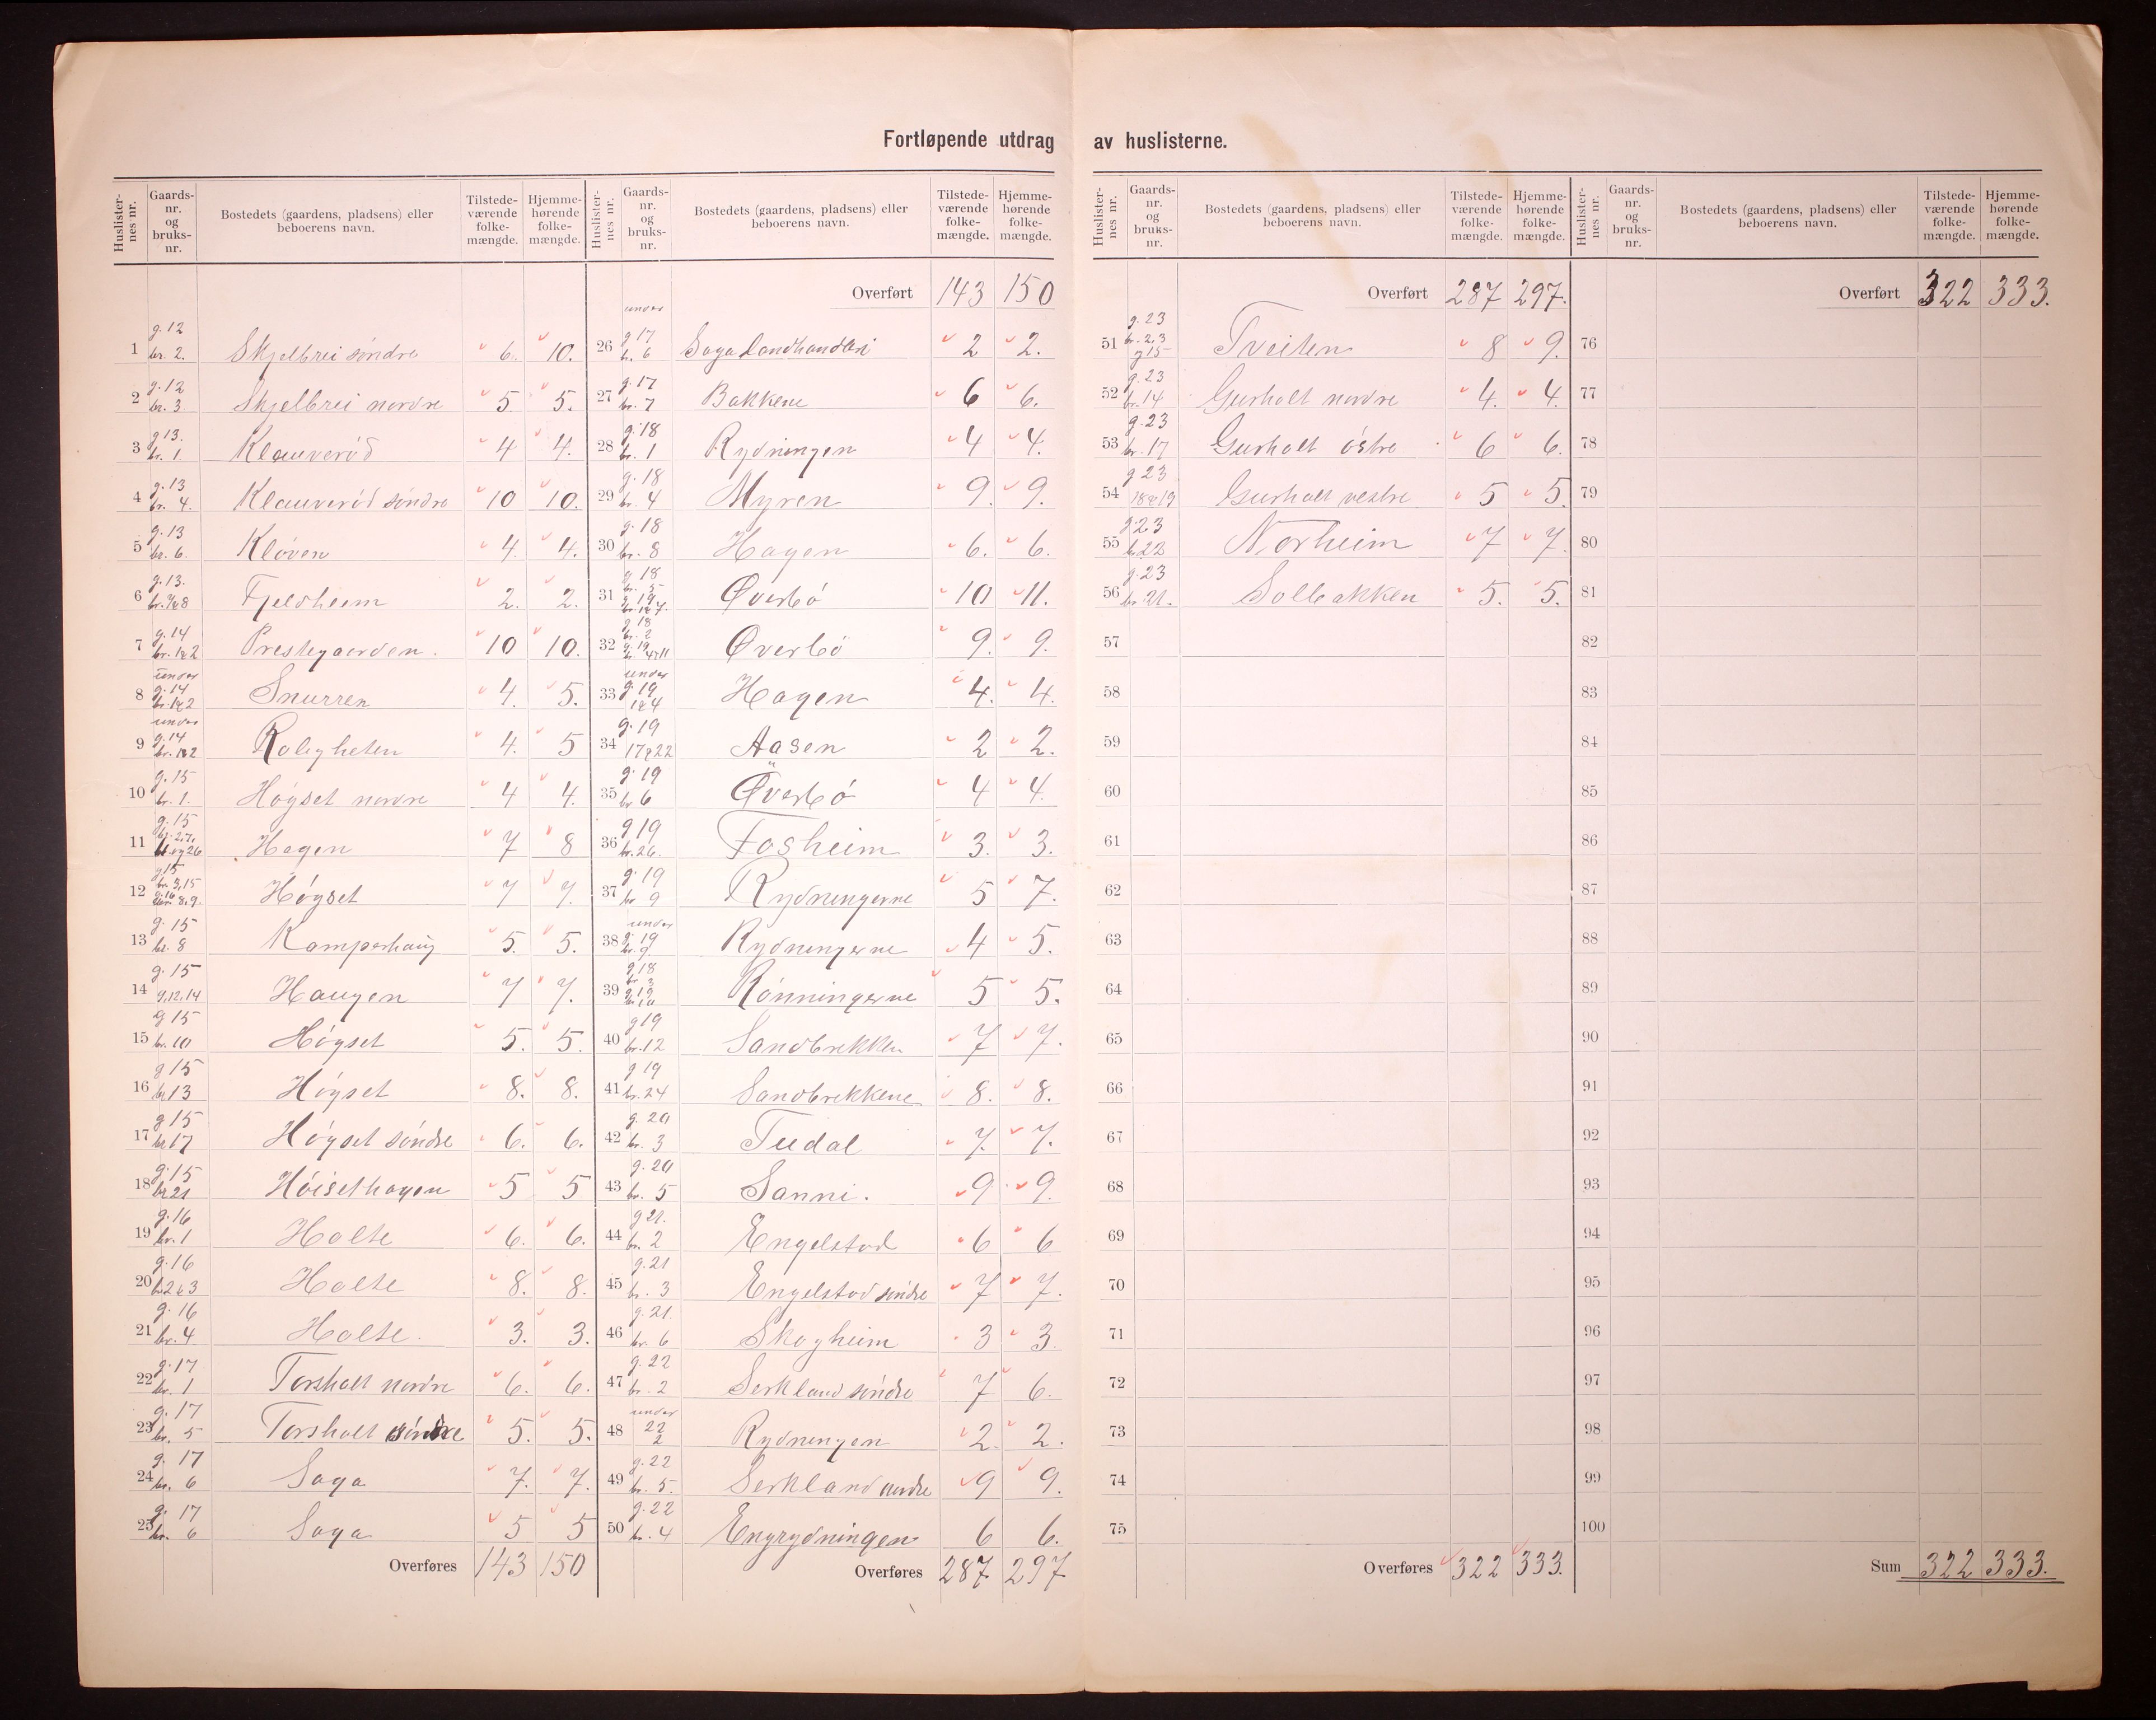 Fortløpende utdrag av huslisterne.
Huslister-nes nr. | Gaards-nr. og bruks-nr. | Bostedets (gaardens, pladsens) eller beboerens navn. | Tilstede-værende folke-mængde. | Hjemme-hørende folke-mængde.
1 g. 12 br. 2. Skjelbrei søndre 6. 10.
2 g. 12 br. 3. Skjelbrei nordre 5 5.
3 g 13. br. 1 Klauverød 4 4.
4 g. 13 br. 4. Klauverød søndre 10 10.
5 g. 13 br. 6. Kløven 4. 4.
6 g. 13. br. 7&8 Fjeldheim 2. 2.
7 g. 14 br. 1&2 Prestegaarden. 10 10.
8 under g. 14 br. 1&2 Snurren 4. 5.
9 under g. 14 br. 1&2 Roligheten 4. 5
10 g. 15 br. 1. Høgset nordre 4 4.
11 g. 15 br. 2,7, og 26 Hagen 7 8
12 g 15 br. 3,15 g. 16 br. 8,9. Høgset 7 7.
13 g. 15 br. 8 Kamperhaug 5. 5.
14 g. 15 9,12,14 Haugen 7 7.
15 g 15 br. 10 Høgset 5. 5.
16 g 15 br 13 Høgset 8. 8.
17 g 15 br 17 Høgset søndre 6. 6.
18 g. 15 br 21 Høisethagen 5 5
19 g. 16 br. 1 Holte 6. 6.
20 g. 16 br 2&3 Holte 8. 8.
21 g. 16 br. 4 Holte. 3. 3.
22 g. 17 br. 1 Torsholt nordre 6. 6.
23 g. 17 br. 5 Torsholt søndre 5. 5.
24 g. 17 br. 6 Saga 7. 7.
25 g. 17 br. 6 Saga 5 5
Overføres 143 150
Huslister-nes nr. | Gaards-nr. og bruks-nr. | Bostedets (gaardens, pladsens) eller beboerens navn. | Tilstede-værende folke-mængde. | Hjemme-hørende folke-mængde.
Overført 143 150
26 under g 17 b. 6 Saga Landhandleri 2 2.
27 g. 17 br. 7 Bakkene 6 6.
28 g. 18 br. 1 Rydningen 4 4.
29 g. 18 br. 4 Myren 9. 9.
30 g. 18 br. 8 Hagen 6. 6.
31 g 18 br. 5 g 19 br. 1&7. Øverbø 10 11.
32 g 18 br. 2 g. 19 br. 4&11 Øverbø 9. 9.
33 under g. 19 1&4 Hagen 4. 4.
34 g. 19 17&22 Aasen 2 2.
35 g. 19 br 6 Øverbø 4 4.
36 g 19 br. 26. Fosheim 3. 3.
37 g. 19 br 9 Rydningerne 5 7.
38 under g. 19 br. 9. Rydningerne 4 5.
39 g 18 br 3 g 19 br 10 Rønningerne 5 5.
40 g 19 br. 12 Sandbrekken 7 7.
41 g 19 br. 24 Sandbrekkene 8. 8.
42 g. 20 br. 3 Tudal 7. 7.
43 g. 20 br. 5 Sanni. 9 9.
44 g 21. br. 2 Engelstad 6 6
45 g. 21 br. 3 Engelstad søndre 7 7.
46 g. 21. br. 6 Skogheim 3 3
47 g. 22 br. 2 Serkland søndre 7 6.
48 under 22 2 Rydningen 2. 2.
49 g. 22 br. 5. Serkland nordre 9 9.
50 g. 22 br. 4 Engrydningen 6 6.
Overføres 287 297
Huslister-nes nr. | Gaards-nr. og bruks-nr. | Bostedets (gaardens, pladsens) eller beboerens navn. | Tilstede-værende folke-mængde. | Hjemme-hørende folke-mængde.
Overført 287 297.
51 g. 23 br. 2,3 g 15 Tveiten 8 9.
52 g. 23 br. 14 Gurholt nordre 4. 4.
53 g. 23 br. 17 Gurholt østre 6 6.
54 g 23 18&19 Gurholt vestre 5 5.
55 g 23 b. 22 Norheim 7 7.
56 g. 23 br. 21. Solbakken 5. 5.
57
58
59
60
61
62
63
64
65
66
67
68
69
70
71
72
73
74
75
Overføres 322 333.
Huslister-nes nr. | Gaards-nr. og bruks-nr. | Bostedets (gaardens, pladsens) eller beboerens navn. | Tilstede-værende folke-mængde. | Hjemme-hørende folke-mængde.
Overført 322 333.
76
77
78
79
80
81
82
83
84
85
86
87
88
89
90
91
92
93
94
95
96
97
98
99
100
Sum 322 333.